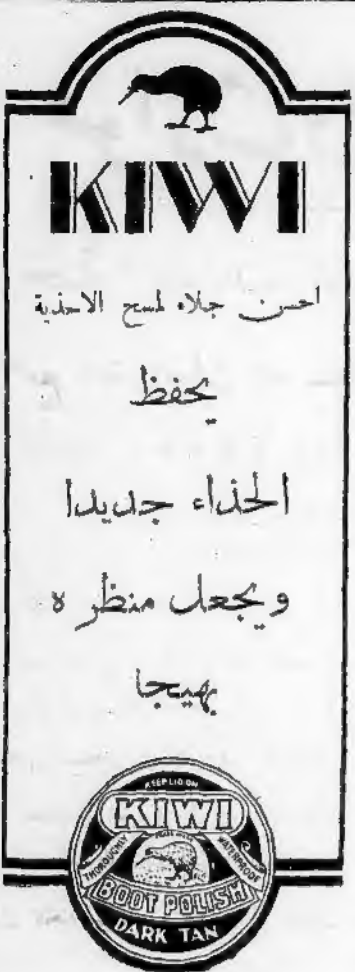 KIWI
احسن جلاء لمسح الاحذية
يحفظ
الحذاء جديدا
ويجعل منظره
بهيجا
KEEP LID ON
KIWI
TRADE MARK
THOROUGHLY WATERPROOF
BOOT POLISH
DARK TAN